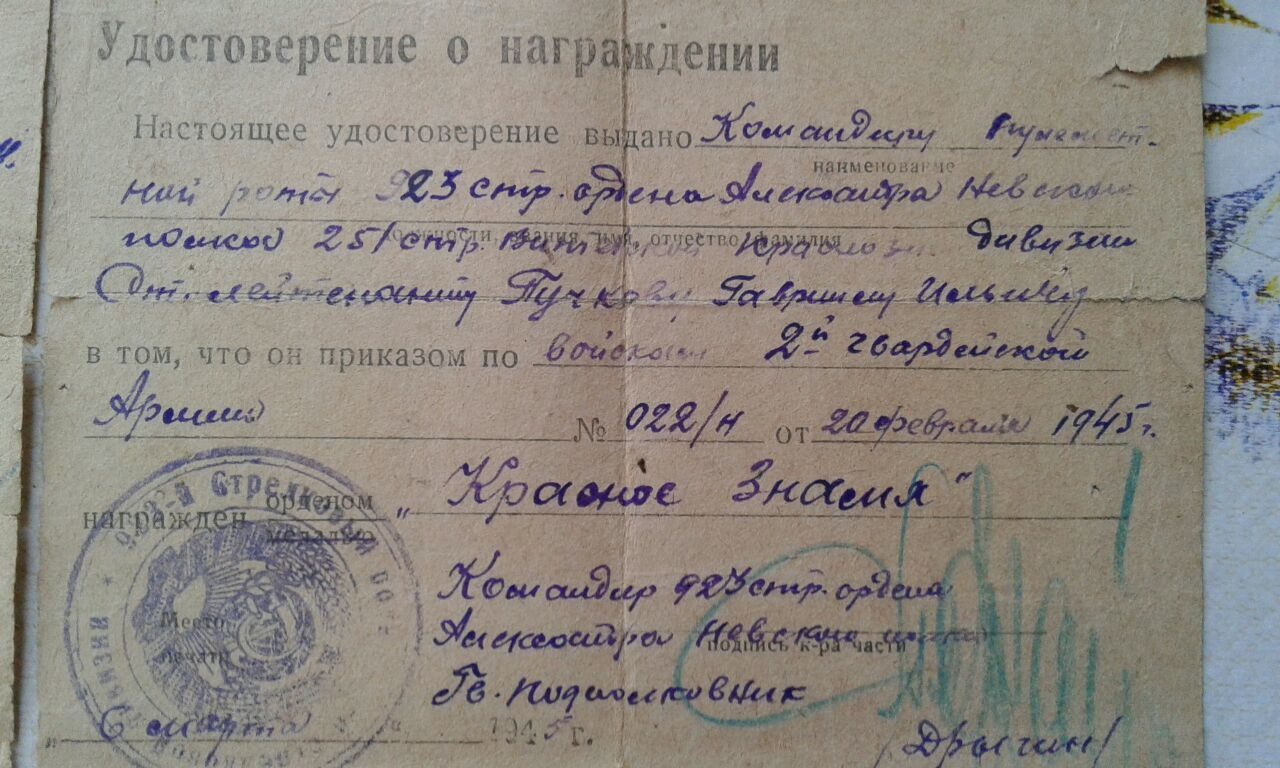 Удостоверение о награждении
Настоящее удостоверение выдано Командиру пулемет-
наименование
ной роты 923 стр. ордена Александра Невского
должности, звания, имя, отчество, фамилия
полка 251 стр. Витебской Краснозн. дивизии
Ст. лейтенанту Пучкову Гавриилу Ильичу
в том, что он приказом по войскам 2й гвардейской
Армии № 022/н от 20 февраля 1945 г.
награжден орденом „Красное Знамя“
медалью
Командир 923 стр. ордена
Александра Невского полка
подпись к-ра части
Гв. подполковник
/Дрыгин/
Место
печати
„6 марта“ 1945 г.
923й Стрелковый
дивизии